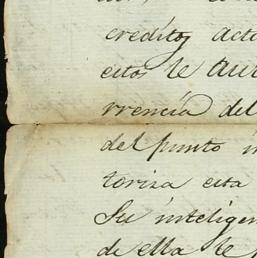 creditos acto
estos le aut
rrencia del
del punto i
toriza esta
Su inteligen
de ella le